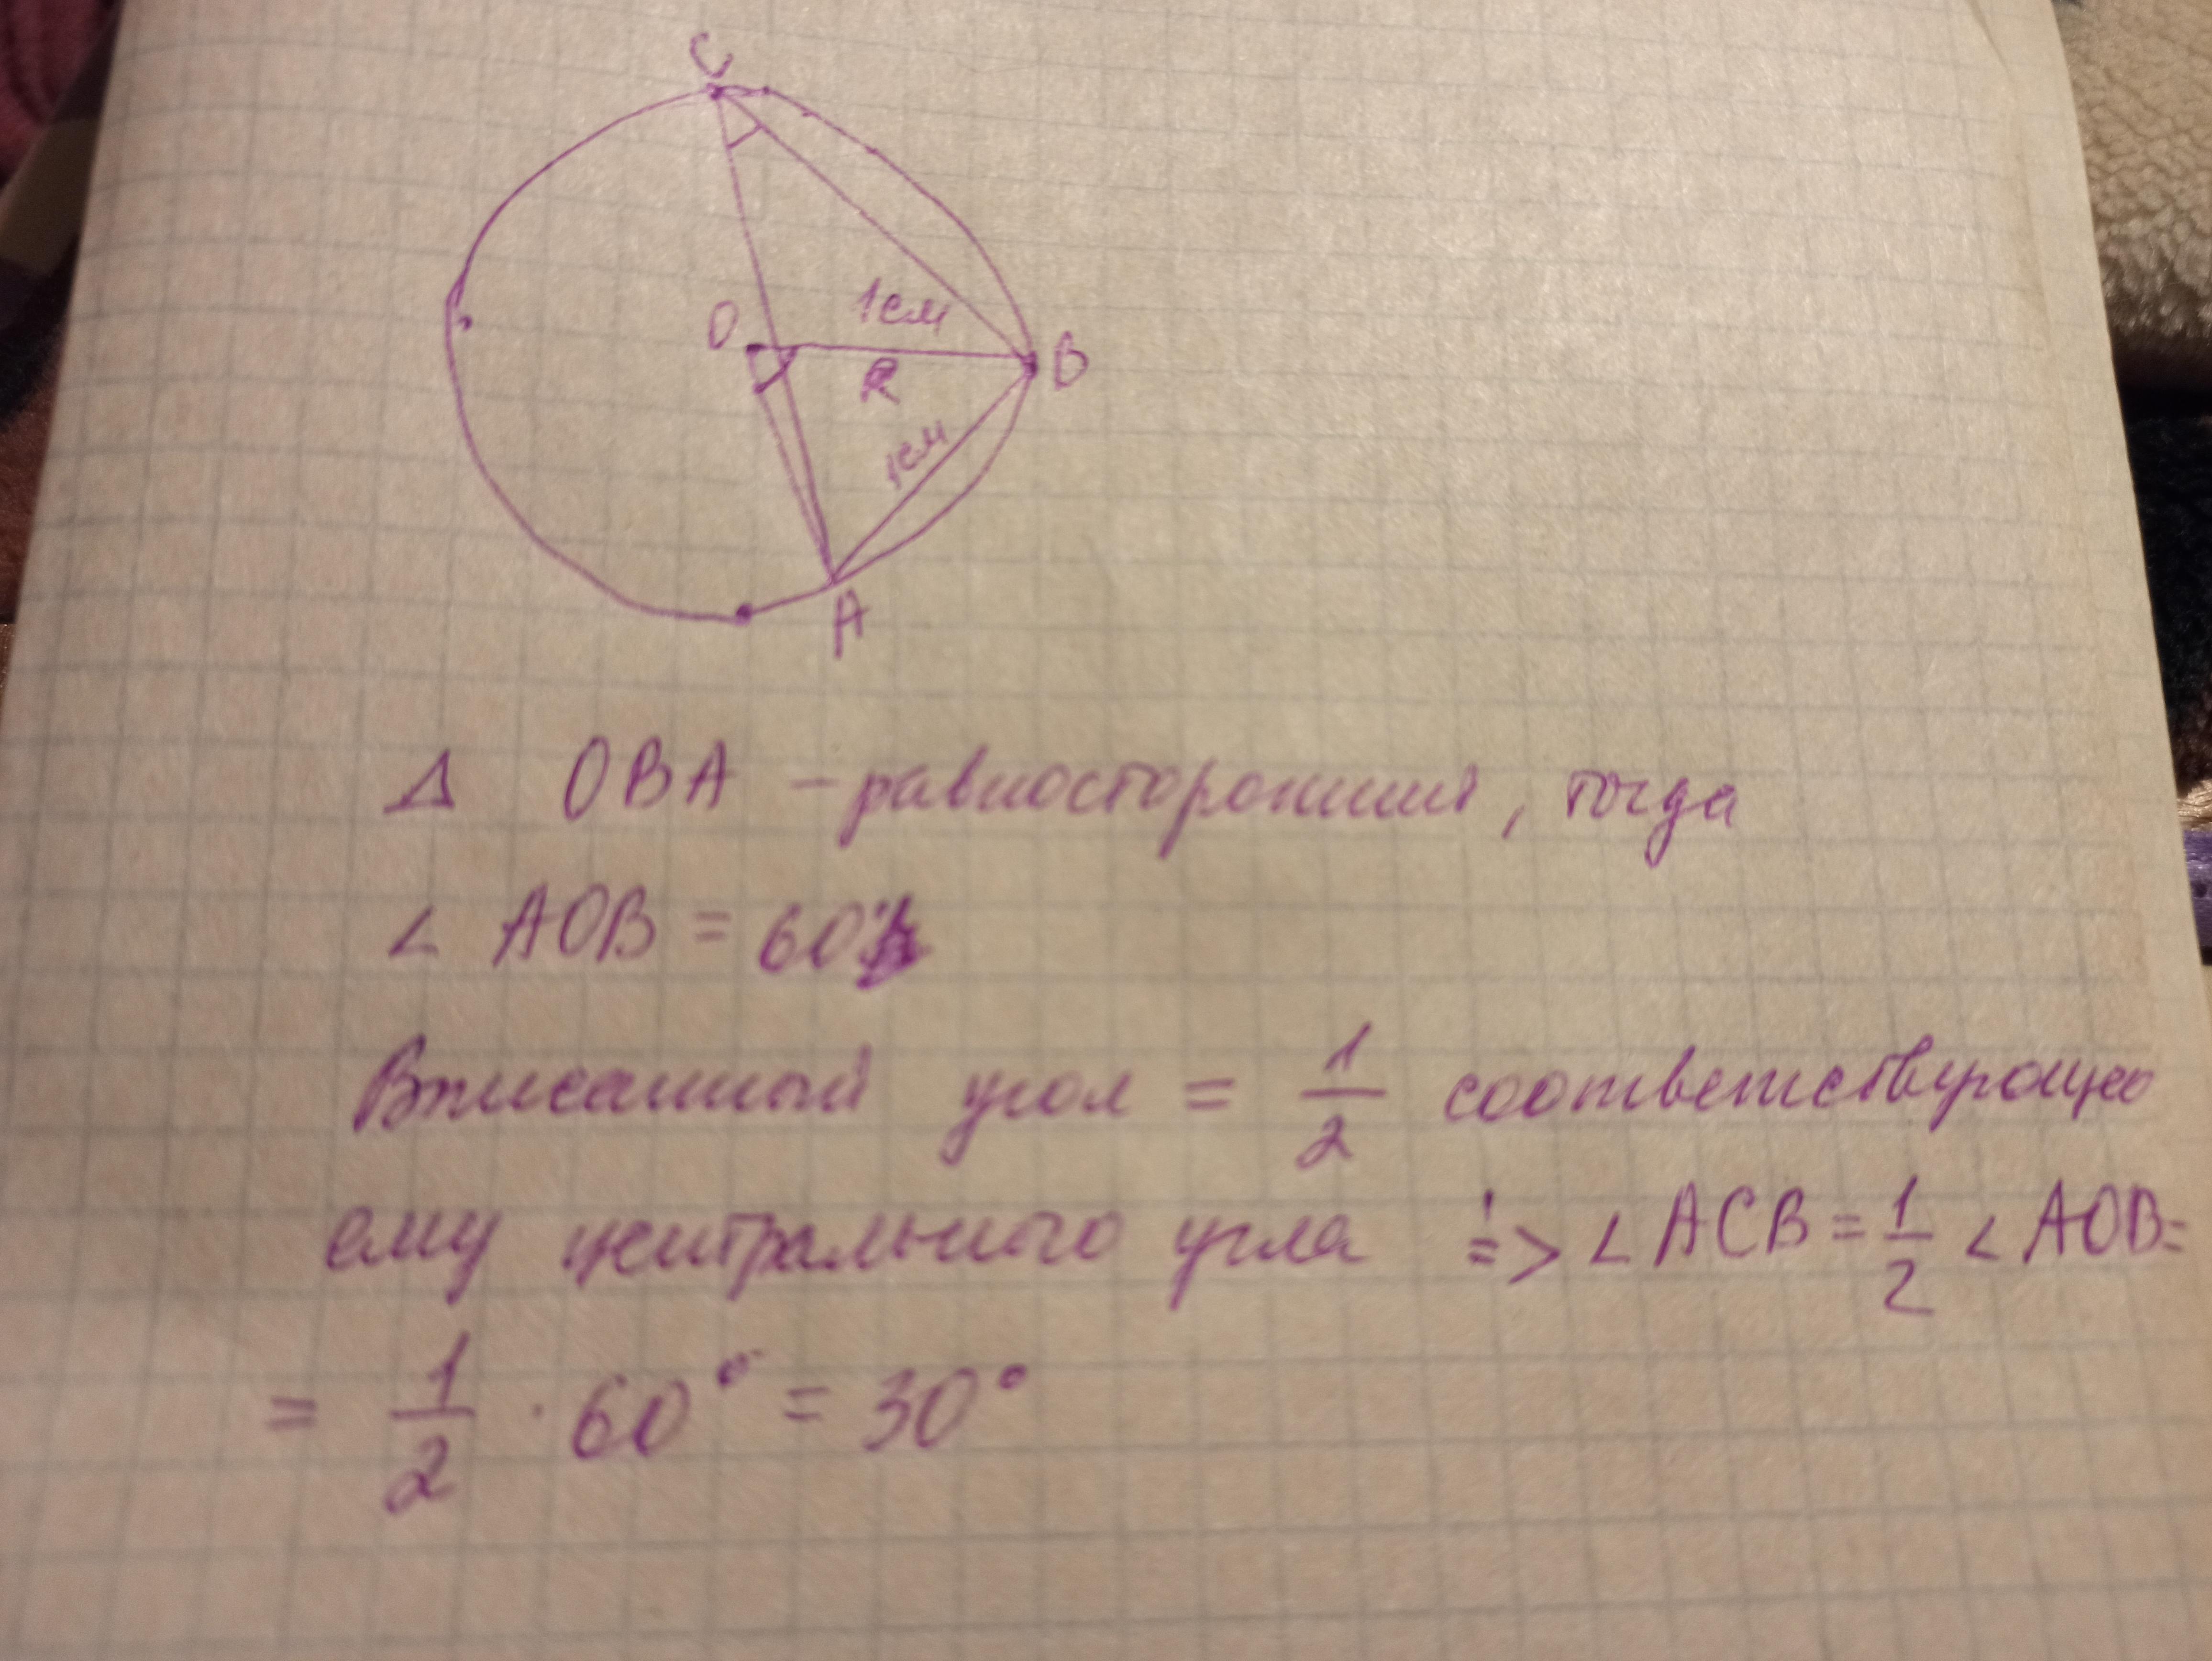 C
O
1см
B
R
1см
A
Δ OBA - равносторонний, тогда
∠ AOB = 60°
Вписанный угол = 1/2 соответствующего
ему центрального угла => ∠ ACB = 1/2 ∠ AOB =
= 1/2 · 60° = 30°